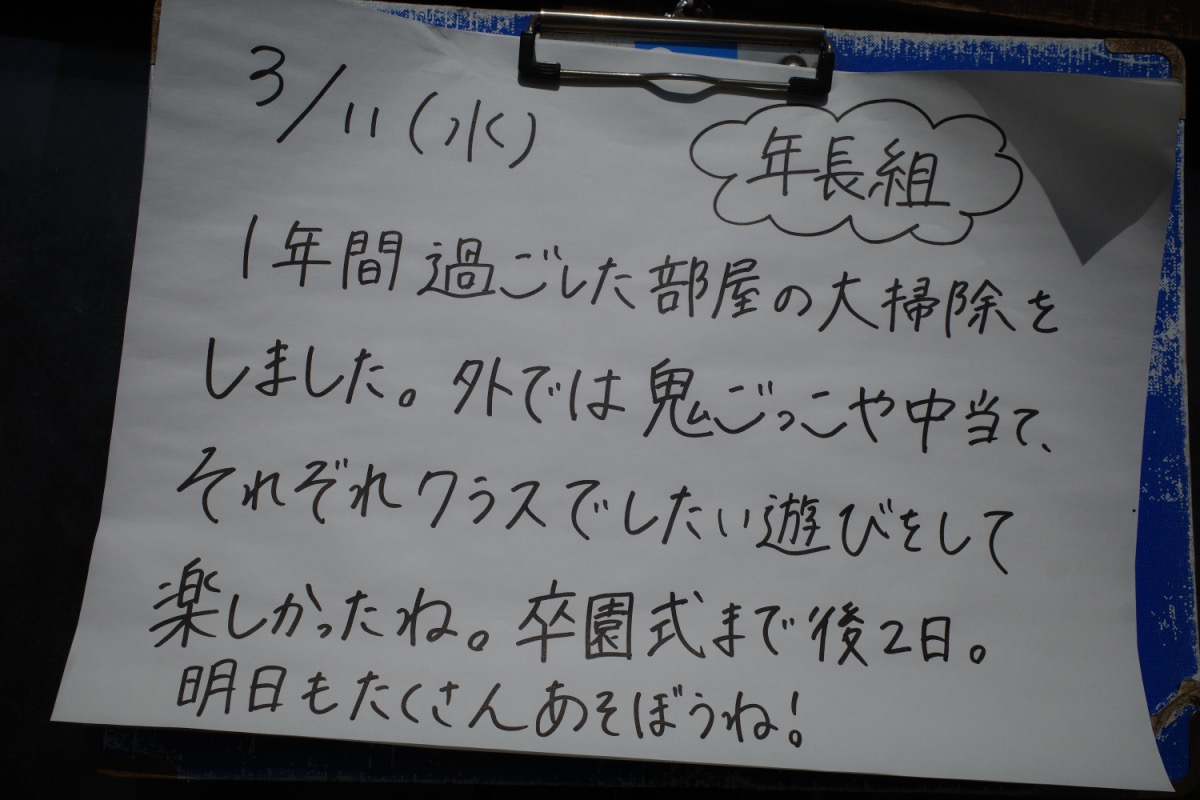 3/11(水)
年長組
1年間過ごした部屋の大掃除を
しました。外では鬼ごっこや中当て、
それぞれクラスでしたい遊びをして
楽しかったね。卒園式まで後2日。
明日もたくさんあそぼうね!